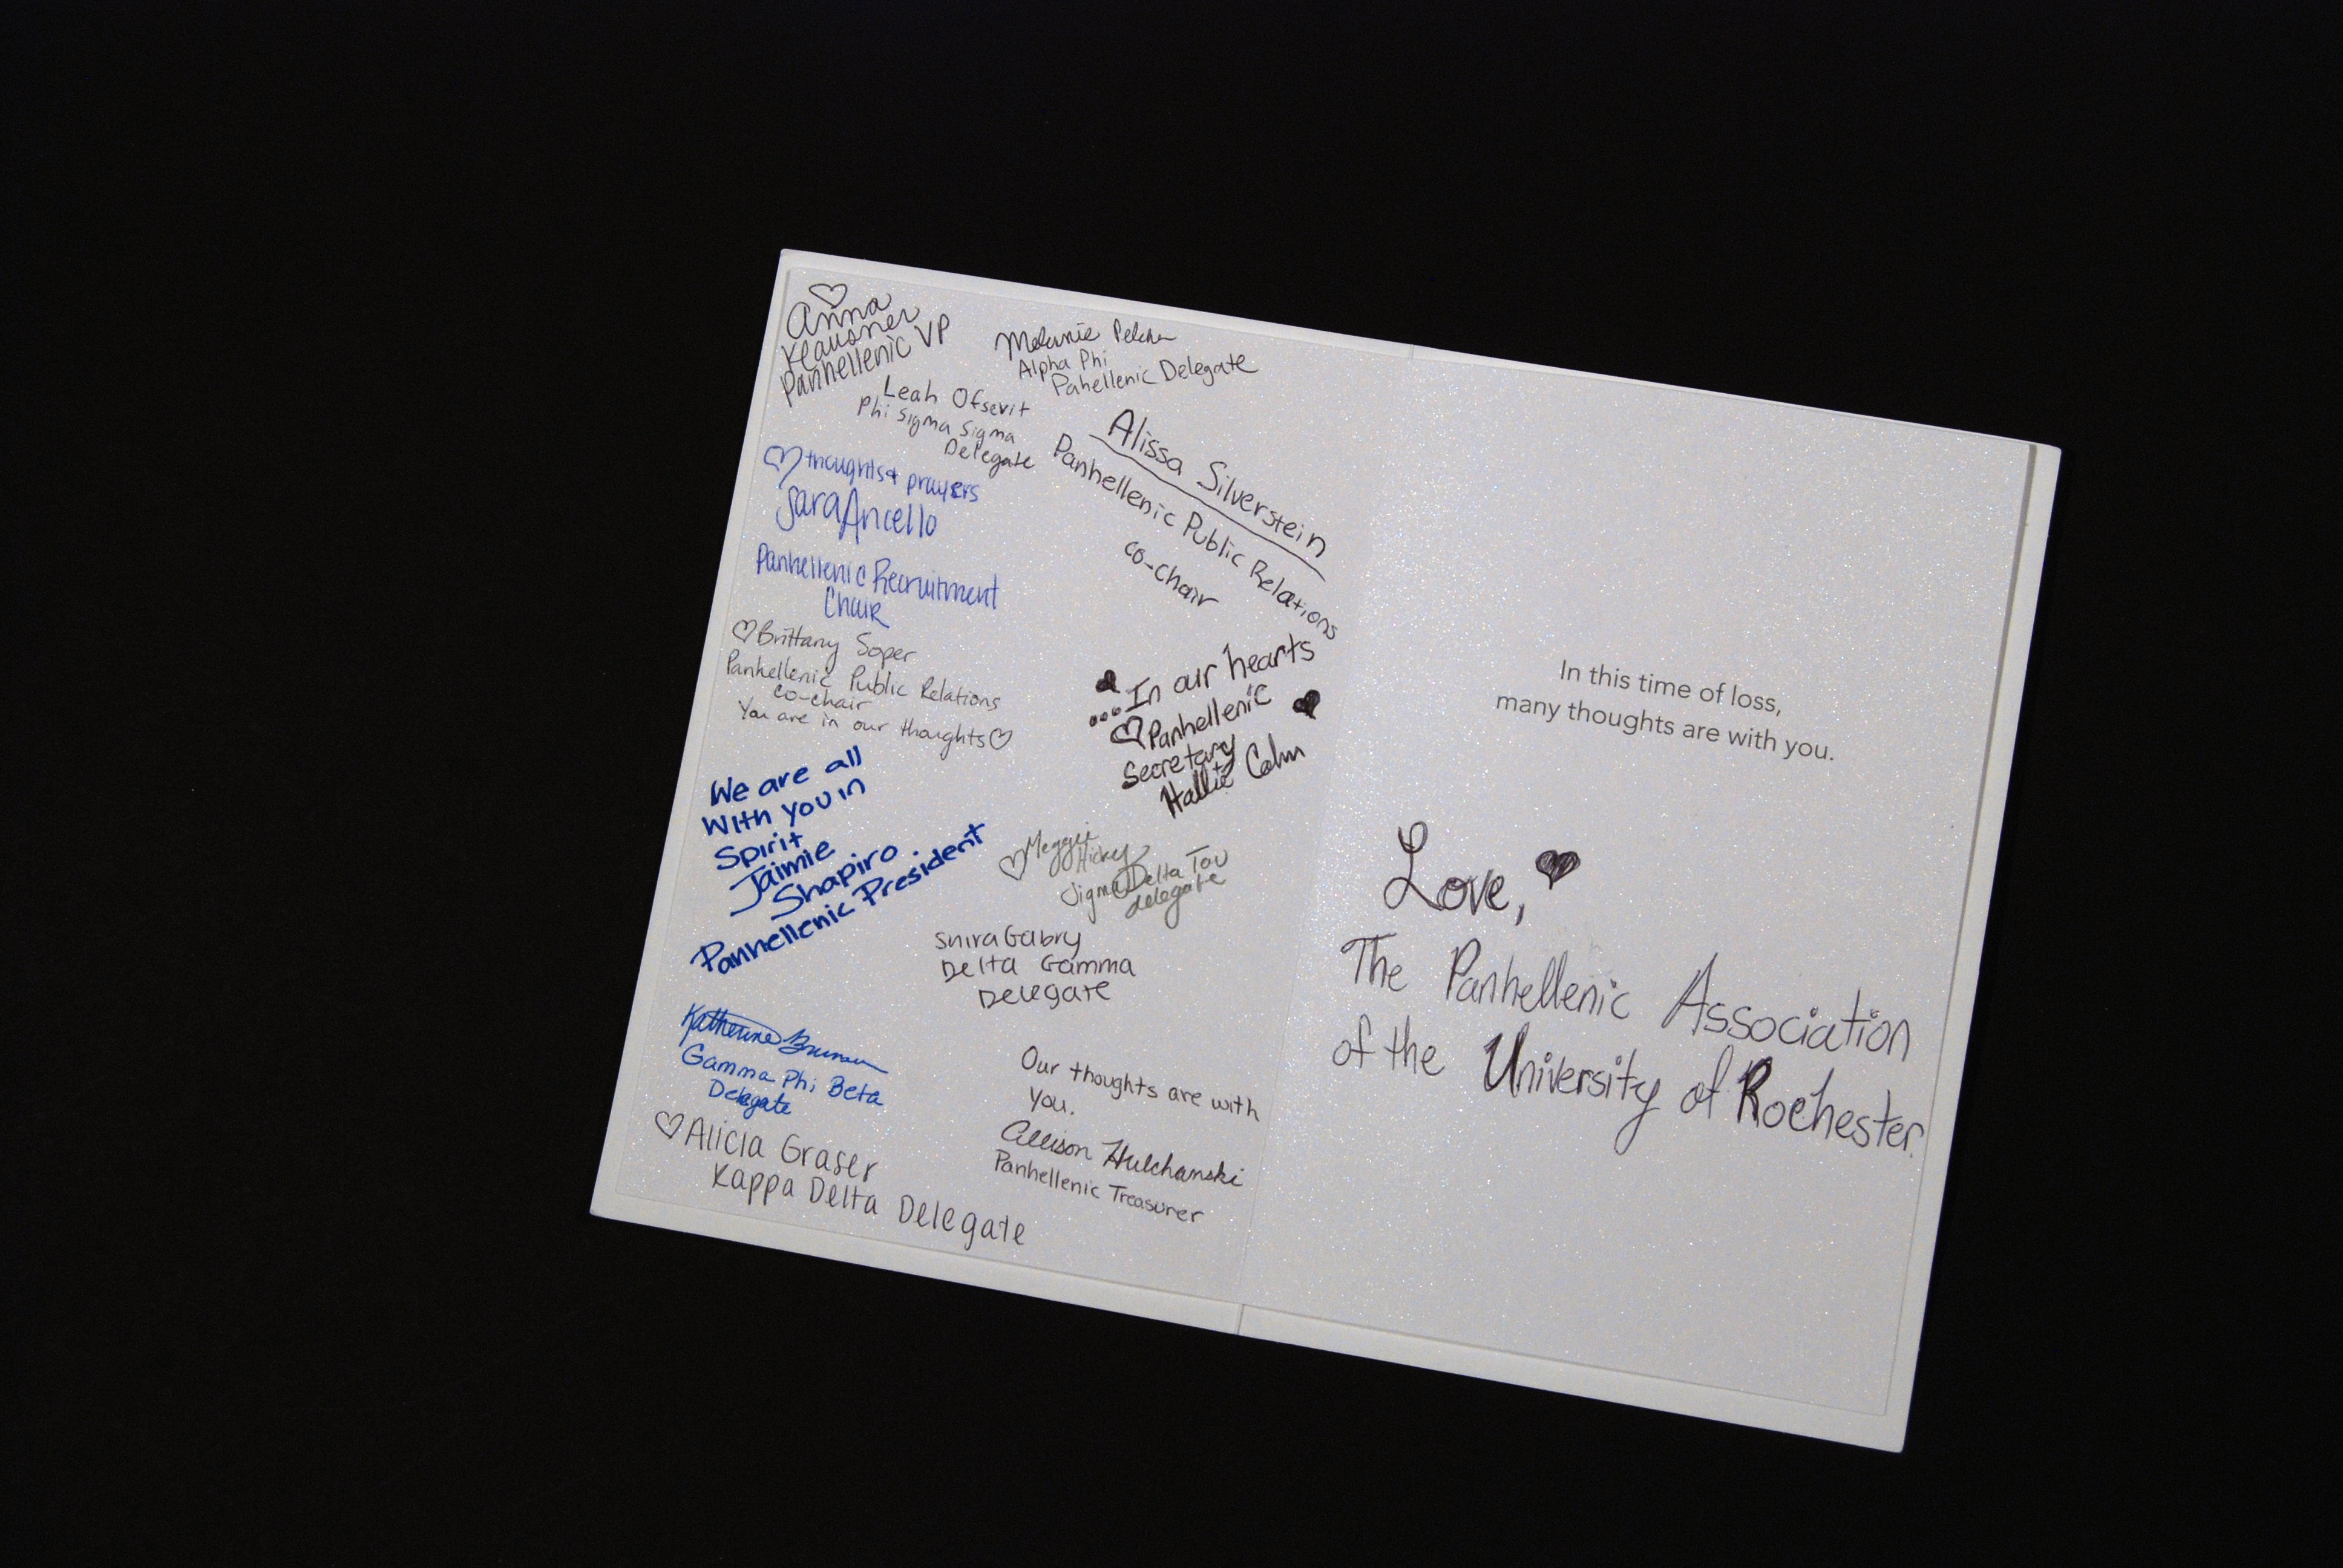 Anna
Klausner
Panhellenic VP
Melanie
Alpha Phi
Pahellenic Delegate
Leah Ofsevit
Phi Sigma Sigma
Delegate
Alissa Silverstein
Panhellenic Public Relations
co-chair
thoughts & prayers
Sara Ancello
Panhellenic Recruitment
Chair
Brittany Soper
Panhellenic Public Relations
co-chair
You are in our thoughts
...In our hearts
Panhellenic
Secretary
Hallie Cohn
We are all
with you in
Spirit
Jaimie
Shapiro
Panhellenic President
Meggie
Hickey
Sigma Delta Tau
delegate
Shira Gabry
Delta Gamma
Delegate
Katherine
Gamma Phi Beta
Delegate
Alicia Graser
Kappa Delta Delegate
Our thoughts are with
you.
Allison Hulchanski
Panhellenic Treasurer
In this time of loss,
many thoughts are with you.
Love,
The Panhellenic Association
of the University of Rochester.